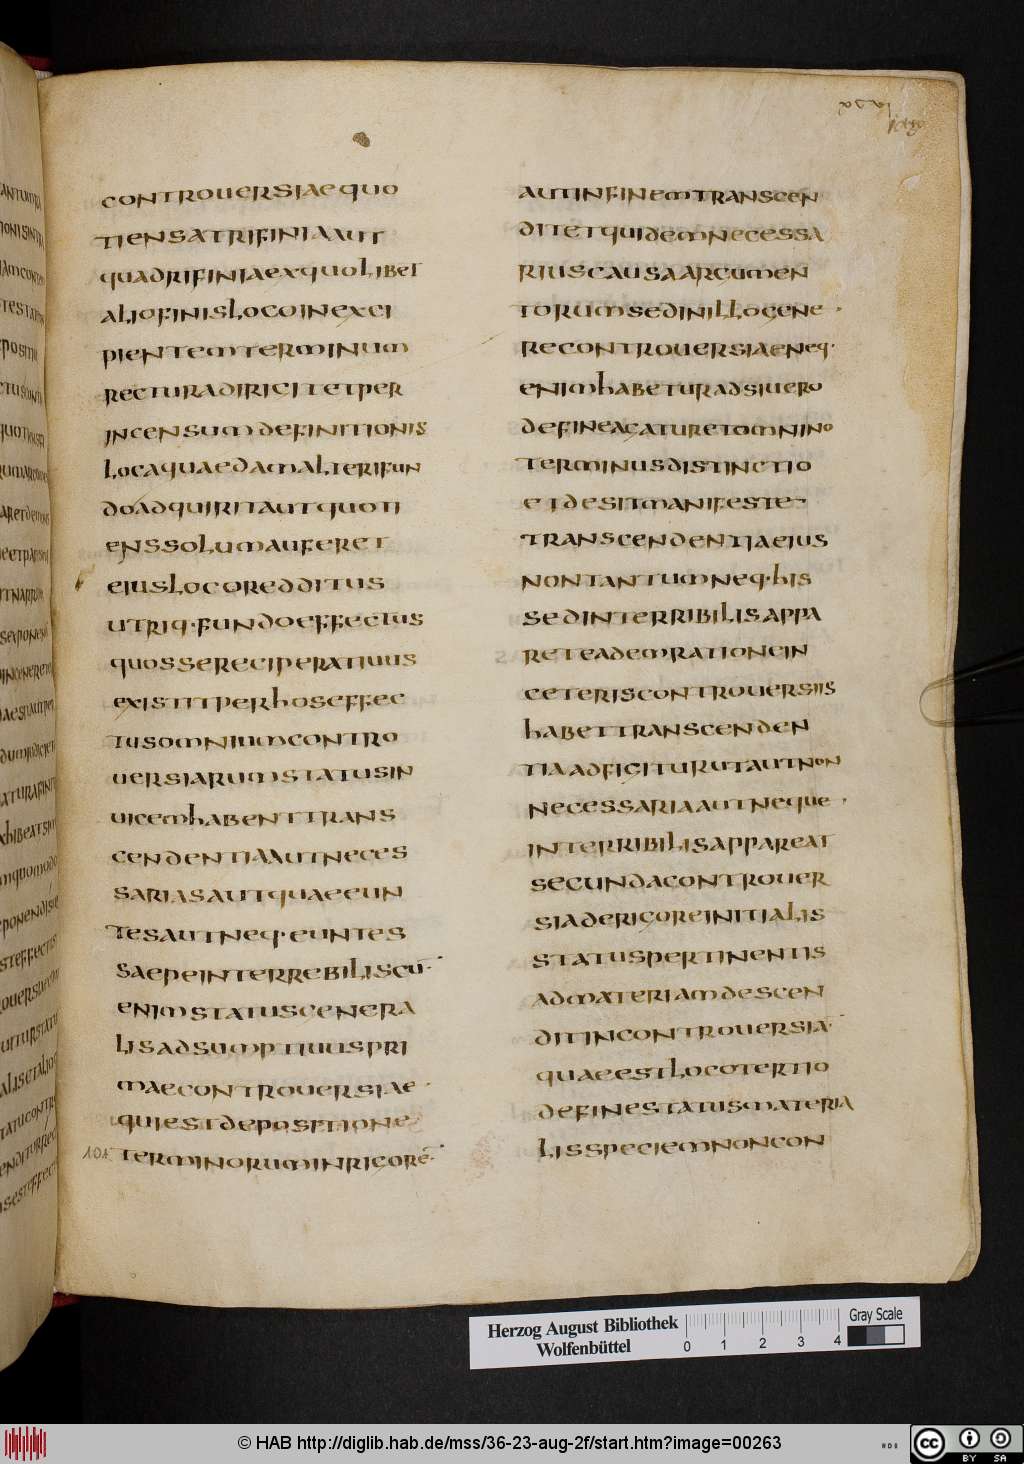 CONTROUERSIAEQUO
TIENSATRIFINIAAUT
QUADRIFINIAEXQUOLIBET
ALIOFINISLOCOINEXCI
PIENTEMTERMINUM
RECTURADIRIGITETPER
INCENSUMDEFINITIONIS
LOCAQUAEDAMALTERIFUN
DOADQUIRITAUTQUOTI
ENSSOLUMAUFERET
EIUSLOCOREDDITUS
UTRIQ·FUNDOEFFECTUS
QUOSSERECIPERATIUUS
EXISTITPERHOSEFFEC
TUSOMNIUMCONTRO
UERSIARUMSTATUSIN
UICEMHABENTTRANS
CENDENTIAAUTNECES
SARIASAUTQUAEEUN
TESAUTNEQ·EUNTES
SAEPEINTERREBILISCŪ·
ENIMSTATUSGENERA
LISADSUMPTIUUSPRI
MAECONTROUERSIAE·
QUIESTDEPOSITIONE
TERMINORUMINRIGORĒ·
AUTINFINEMTRANSCEN
DITETQUIDEMNECESSA
RIUSCAUSAARGUMEN
TORUMSEDINILLOGENE·
RECONTROUERSIAENEQ·
ENIMHABETURADSIUERO
DEFINEAGATURETOMNINO
TERMINUSDISTINCTIO
ETDESITMANIFESTE
TRANSCENDENTIAEIUS
NONTANTUMNEQ·HIS
SEDINTERRIBILISAPPA
RETEADEMRATIONEIN
CETERISCONTROUERSIIS
HABETTRANSCENDEN
TIAADFIGITURUTAUTNON
NECESSARIAAUTNEQUE·
INTERRIBILISAPPAREAT
SECUNDACONTROUER
SIADERIGOREINITIALIS
STATUSPERTINENTIS
ADMATERIAMDESCEN
DITINCONTROUERSIA·
QUAEESTLOCOTERTIO
DEFINESTATUSMATERIA
LISSPECIEMNONCON
Herzog August Bibliothek
Wolfenbüttel
0 1 2 3 4
Gray Scale
© HAB http://diglib.hab.de/mss/36-23-aug-2f/start.htm?image=00263
cc BY SA